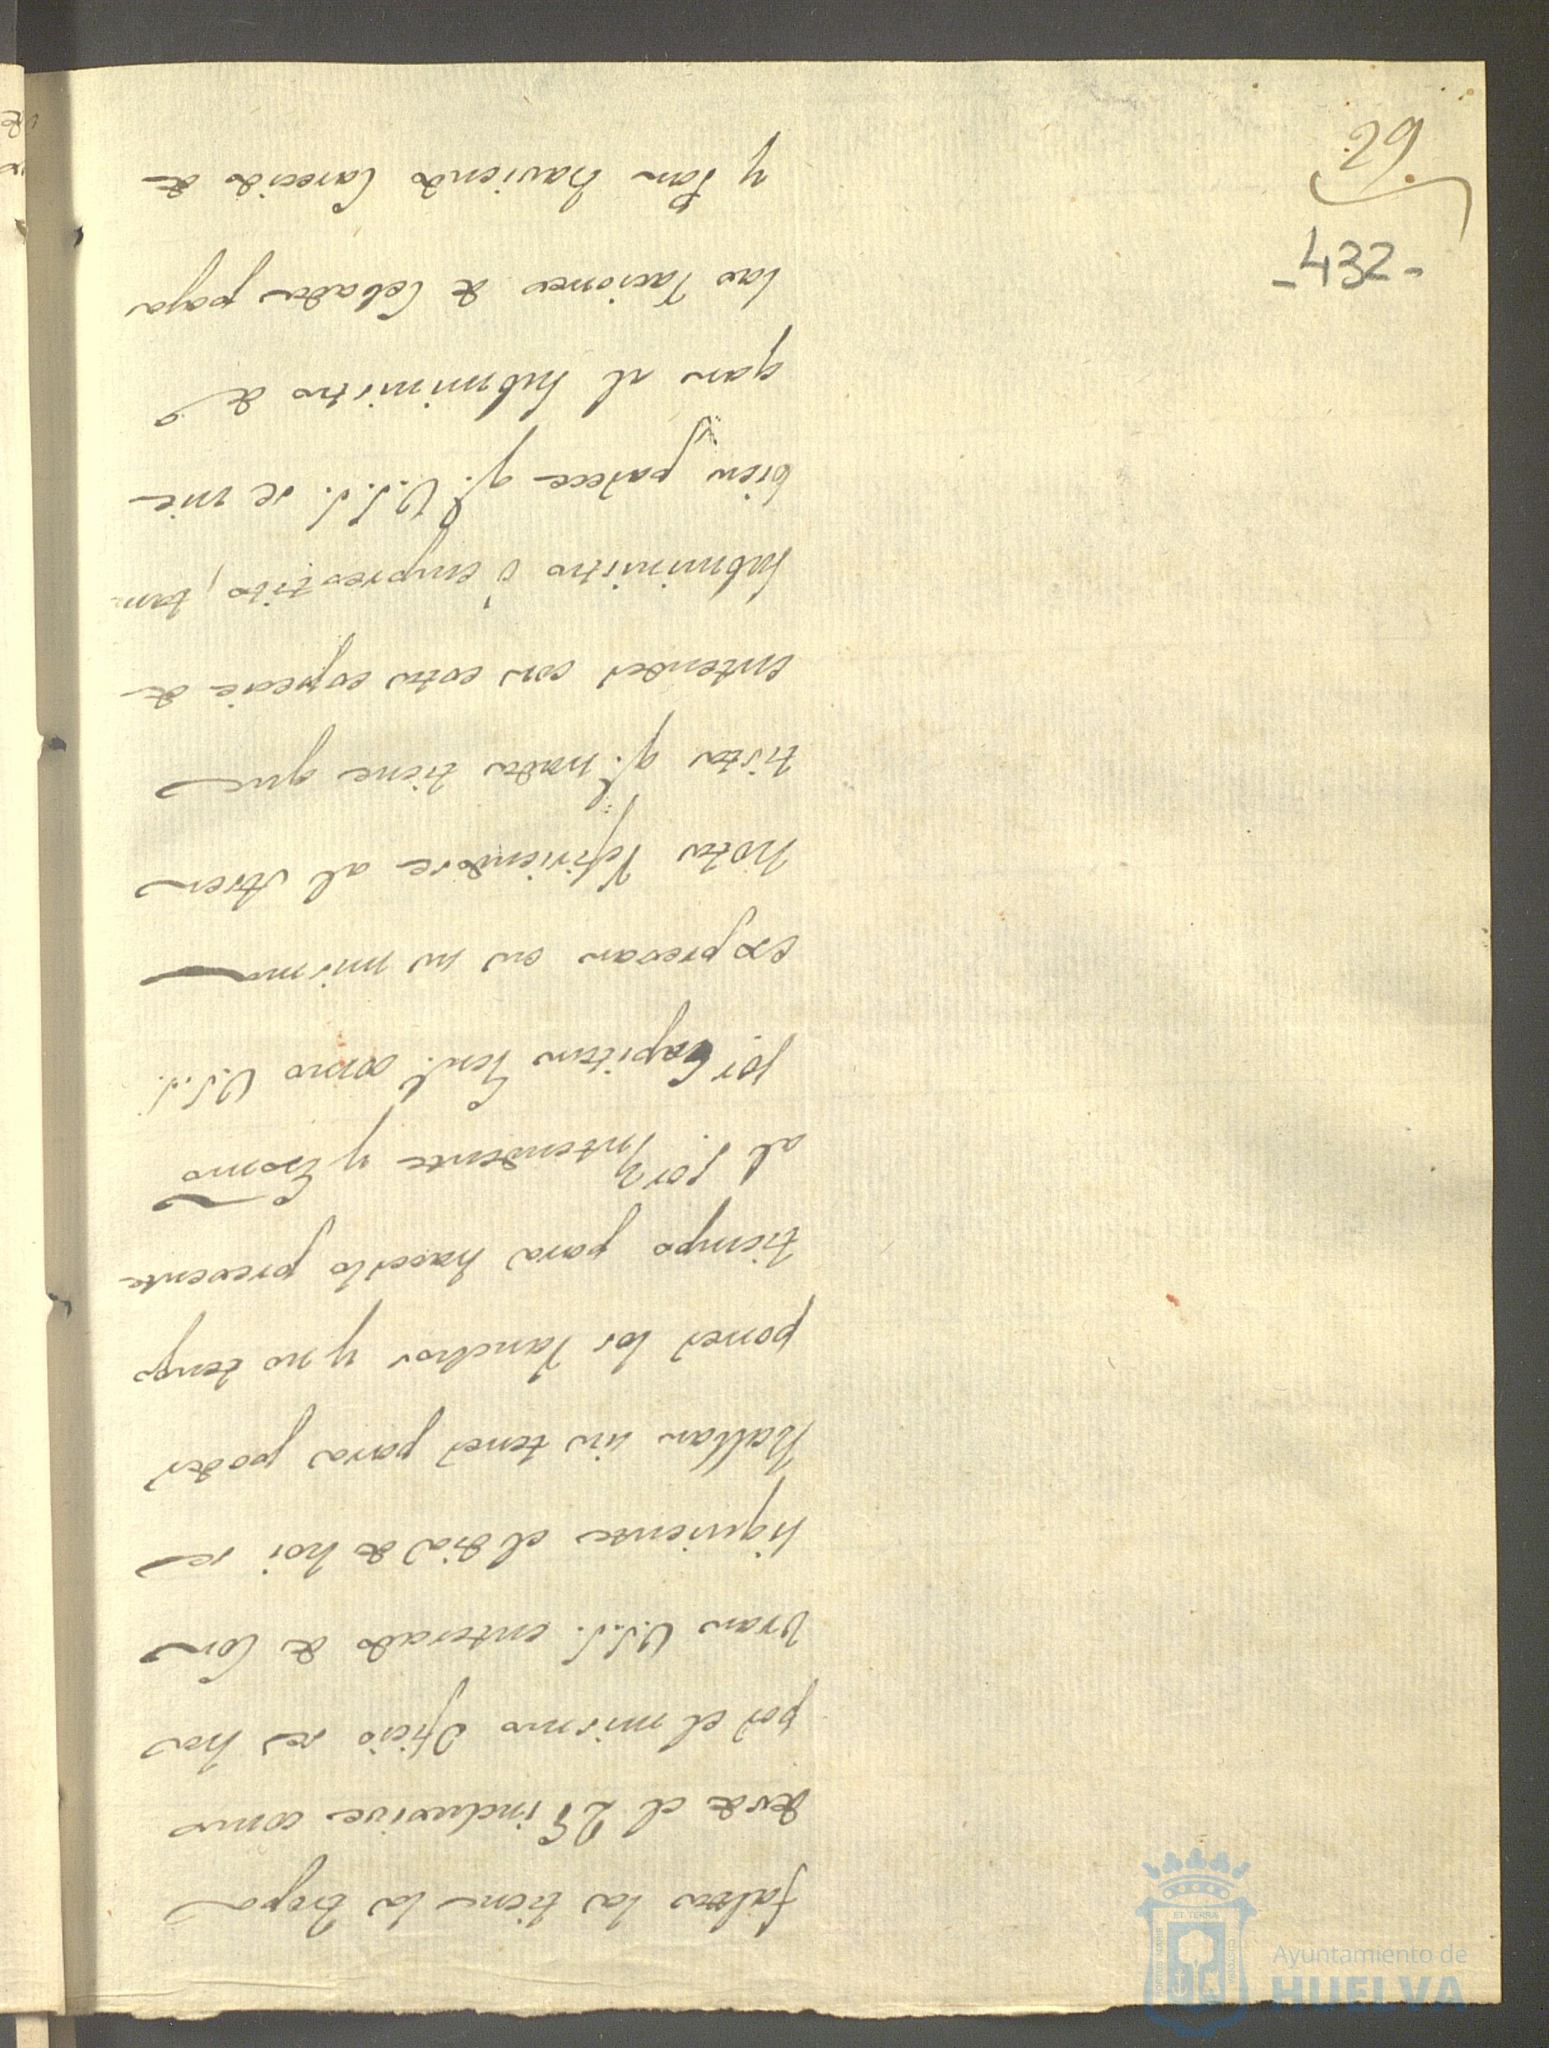 29
-432-
falta la tiene la Tropa
desde el 25 inclusive como
por el mismo Oficio se ha
vran V.S.S. enterado de Con
siguiente el dia de hoi se
hallan sin tener para poder
poner los Ranchos y no tengo
tiempo para hacerlo presente
al Sor. Intendente y Exmo
Sor Capitan Genl. como V.S.S.
expresan en su misma
Nota Refiriendose al Asen
tista q.e nada tiene que
entender con esta especie de
subministro ó emprestito, tam
bien parece q.e V.S.S. se nie
gan al subministro de
las Raciones de Cebada paja
y Pan haviendo Carecido de
Ayuntamiento de
HUELVA